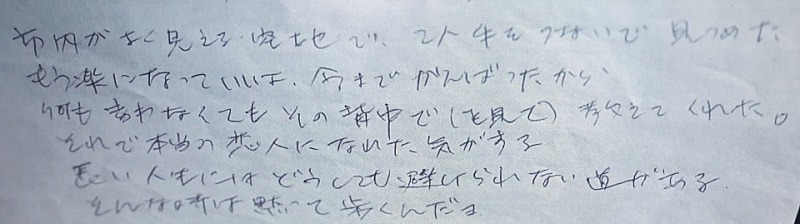 市内がよく見える空き地で、2人手をつないで見つめた
もう楽になっていいよ、今までがんばったから
何も言わなくてもその背中で(を見て)教えてくれた。
それで本当の恋人になれた気がする
長い人生にはどうしても避けられない道がある
そんな時は黙って歩くんだヨ